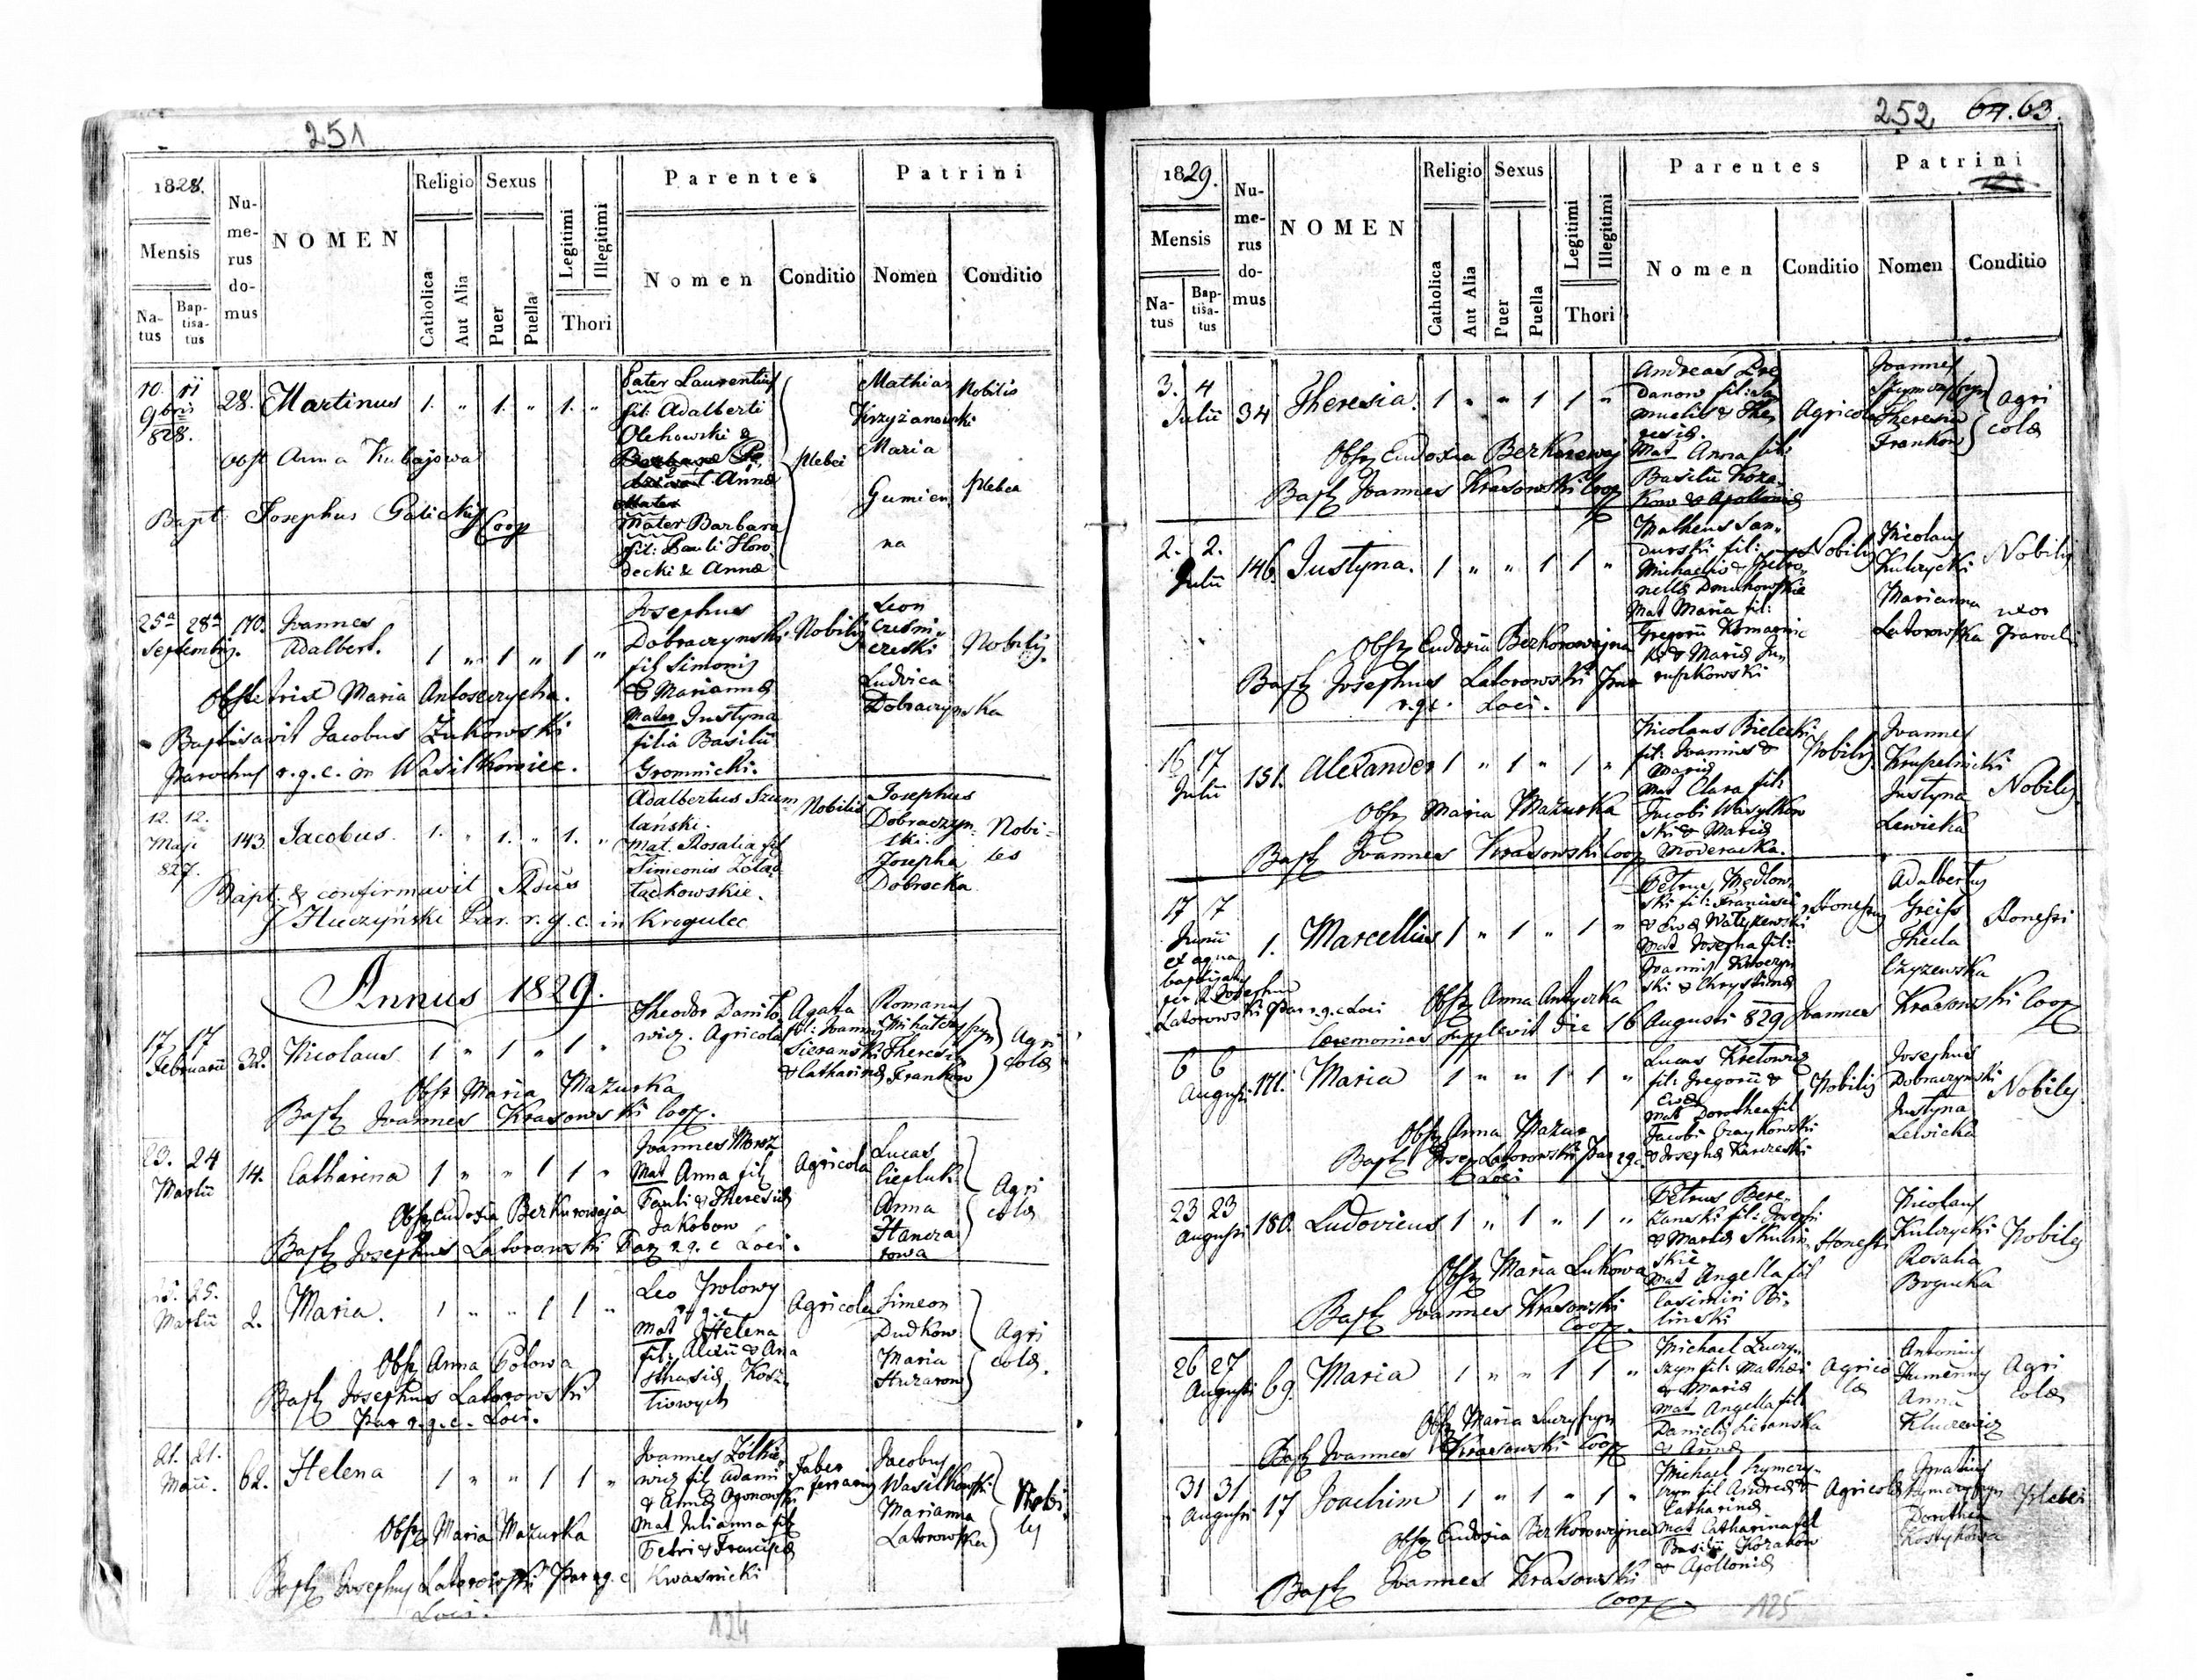 251
1828.
Mensis
Na-
tus
Bap-
tisa-
tus
Nu-
me-
rus
do-
mus
NOMEN
Religio
Catholica
Aut Alia
Sexus
Puer
Puella
Legitimi
Illegitimi
Thori
Parentes
Nomen
Conditio
Patrini
Nomen
Conditio
10. 11
9bris
828.
28. Martinus 1. " 1. " 1. "
Pater Laurentius
fil: Adalberti
Olehowski &
Annæ
Mater Barbara
fil: Pauli Horo
decki & Annæ
plebei
Mathias
Krzyżanowski
Maria
Gumien
na
Nobilis
plebea
obst Anna Kubajowa
Bapt: Josephus Galickij Coop
25a 28a
Septembris.
170. Joannes
Adalbert. 1 " 1 " 1 "
Josephus
Dobraczynski
fil Simonis
& Mariannæ
Mater Justyna
filia Basilii
Gromnicki.
Nobilis
Leon
Ludvica
Dobraczynska
Nobiles.
Obstetrix Maria Antoszczycha.
Baptisavit Jacobus Żukowski
Parochus r.g.c. in Wasilkowiec.
12. 12.
Maji
827.
143. Jacobus. 1. " 1. " 1. "
Adalbertus Szum
lański.
Mat. Rosalia fil
Simeonis
Nobilis
Josephus
Dobraczyn-
ski.
Josepha
Dobrocka
Nobi-
les
Bapt. & confirmavit
J Huczyński Par. r. g. c. in Kregulec
Annus 1829.
17 17
Februarii
32. Nicolaus 1 " 1 " 1 "
Theodor Daniło
wicz. Agricola
Agata
fil: Joannis
Sieranski
& Catharinæ
Romanus
Theresia
Frankow
Agri
colæ
Obst Maria Mazurka
Bapt Joannes Krasowski Coop.
23. 24
Martii
14. Catharina 1 " " 1 1 "
Joannes Moroz
Mat Anna fil
Pauli & Theresiæ
Jakobow
Agricola
Lucas
Ciepluk
Anna
Hancza
rowa
Agri
colæ
Obst Eudoxia Berkorowaja
Bapt Josephus Latorowski Par r. g. c Loci.
25. 25.
Martii
2. Maria. 1 " " 1 1 "
Leo Polowy
r. g. c
Mat Helena
fil: Alexii & Ana
sthasiæ Kosz
Tiowych
Agricola
Simeon
Dudkow
Maria
Huzarow
Agri
colæ.
Obst Anna Połowa
Bapt Josephus Latorowski
Par r. g. c. Loci.
21. 21.
Maii.
62. Helena 1 " " 1 1 "
Joannes Żołkie
wicz fil Adami
& Annæ Ogonowski
Mat Julianna fil
Petri & Franciscæ
Kwasnicki
Faber
ferrarius
Jacobus
Wasilkowski
Marianna
Latorowska
Nobi
les
Obst Maria Mazurka
Bapt Josephus Latorowski Par r. g. c
Loci.
124
252 64. 63.
1829.
Mensis
Na-
tus
Bap-
tisa-
tus
Nu-
me-
rus
do-
mus
NOMEN
Religio
Catholica
Aut Alia
Sexus
Puer
Puella
Legitimi
Illegitimi
Thori
Parentes
Nomen
Conditio
Patrini
Nomen
Conditio
3. 4
Julii
34 Theresia. 1 " " 1 1 "
Andreas
Danow fil: Sa
muelis & The
resiæ.
Mat Anna fil:
Basilii Koza
kow & Apolloniæ
Agricola
Joannes
Theresia
Frankow
agri
colæ
Obst Eudoxia Berkorowaj
Bapt Joannes Krasowski Coop
2. 2.
Julii
146. Justyna. 1 " " 1 1 "
Matheus San
durski fil:
Michaelis & Petro
nellæ
Mat Maria fil:
Gregorii Komarnic
ki & Mariæ
Nobilis
Nicolaus
Kulczycki
Marianna
Latorowska
Nobilis
uxor
Parochi
Obst Eudoxia Berkorowajna
Bapt Josephus Latorowski Par
r.g.c. Loci.
16 17
Julii
151. Alexander 1 " 1 " 1 "
Nicolaus Bielecki
fil: Joannis &
Mariæ
Mat Clara fil:
Jacobi Wasylkow
ski & Mariæ
Moderacka.
Nobilis
Joannes
Krupelnicki
Justyna
Lewicka
Nobiles
Obst Maria Mazurka
Bapt Joannes Krasowski Coop
17 17
Junii
ex aqua
baptisatus
per R Josephum
Latorowski Par r. g. c Loci
1. Marcellus 1 " 1 " 1 "
Petrus Medlow
ski fil: Francisci
& Evæ
Mat Josepha fil:
Joannis
ski & Chrystinæ
Honestus
Adalbertus
Greifs
Thecla
Czyzewska
Honesti
Obst Anna Antyczka
Cæremonias supplevit die 16 Augusti 829 Joannes Krasowski Coop
6 6
Augusti
171. Maria 1 " " 1 1 "
Lucas Kretowicz
fil: Gregorii &
Evæ
Mat Dorothea fil
Jacobi
& Josephæ
Nobilis
Josephus
Dobraczynski
Justyna
Lewicka
Nobiles
Obst Anna Mazur
Bapt Josep Latorowski Par r. g. c
Loci
23 23
Augusti
180. Ludovicus 1 " 1 " 1 "
Petrus Bere
zanski fil: Josephi
& Mariæ
skie
Mat Angella fil
Casimiri Bi
linski
Honesti
Nicolaus
Kulczycki
Rosalia
Bogucka
Nobiles
Obst Maria Lukowa
Bapt Joannes Krasowski
Coop.
26 27
Augusti
69. Maria 1 " " 1 1 "
Michael Łuczy
szyn fil: Mathæi
& Mariæ
Mat Angella fil:
Danielis Sieranska
& Annæ
Agrico
læ
Antonius
Humenny
Anna
Kluczewicz
Agri
colæ
Obst Maria Łuczyszyn
Bapt Joannes Krasowski Coop
31 31
Augusti
17 Joachim 1 " 1 " 1 "
Michael Szymczy
szyn fil Andreæ &
Catharinæ
Mat Catharina fil
Basilii Kozakow
& Apolloniæ
Agricolæ
Ignatius
Szymczyszyn
Dorothea
Kostykowa
Plebei
Obst Eudoxia Berkorowajna
Bapt Joannes Krasowski
Coop
125